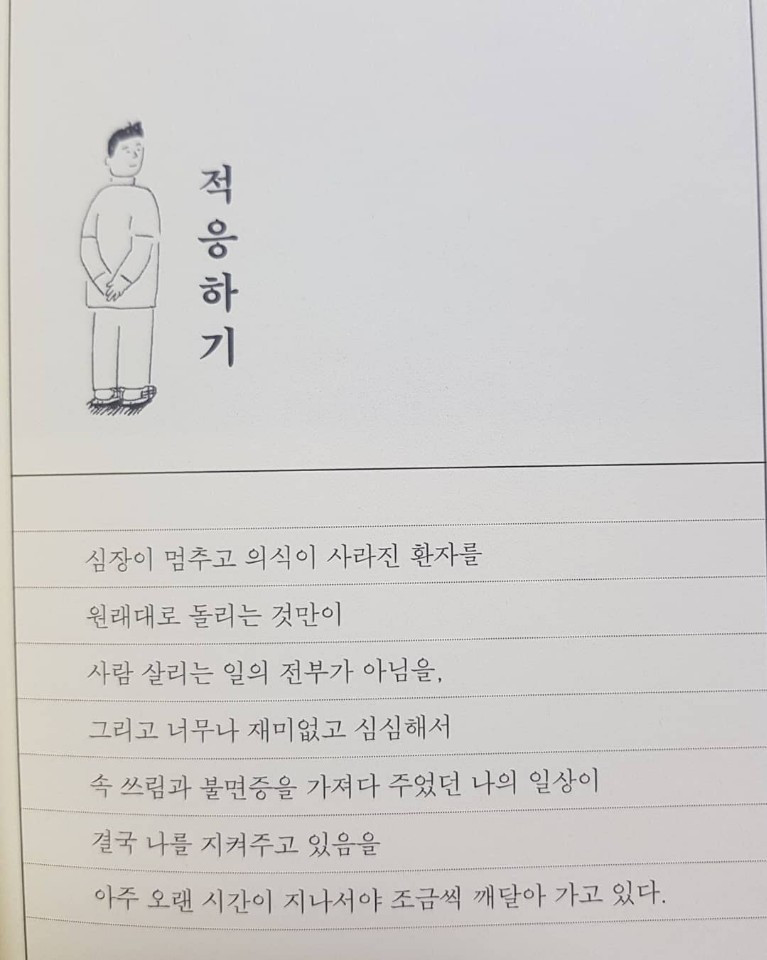 적응하기
심장이 멈추고 의식이 사라진 환자를
원래대로 돌리는 것만이
사람 살리는 일의 전부가 아님을,
그리고 너무나 재미없고 심심해서
속 쓰림과 불면증을 가져다 주었던 나의 일상이
결국 나를 지켜주고 있음을
아주 오랜 시간이 지나서야 조금씩 깨달아 가고 있다.